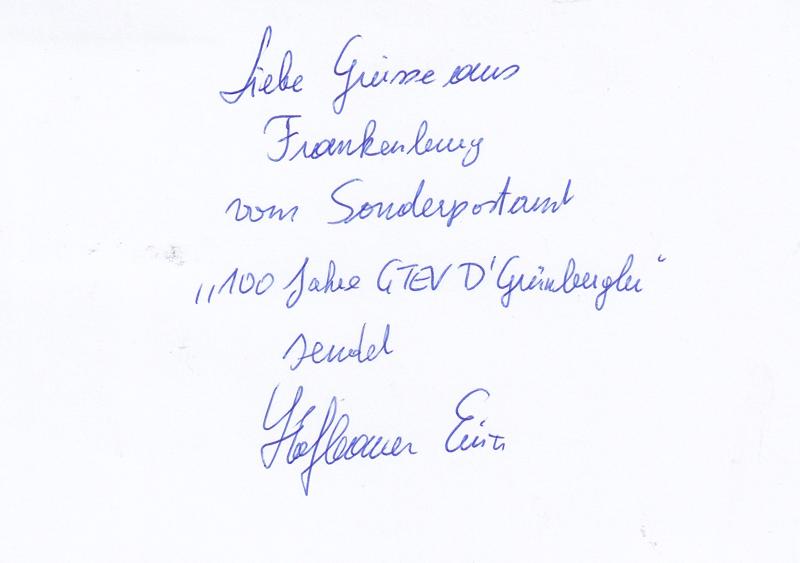 Liebe Grüsse aus
Frankenburg
vom Sonderpostamt
„100 Jahre GTEV D'Grünbergler“
sendet
Hofbauer